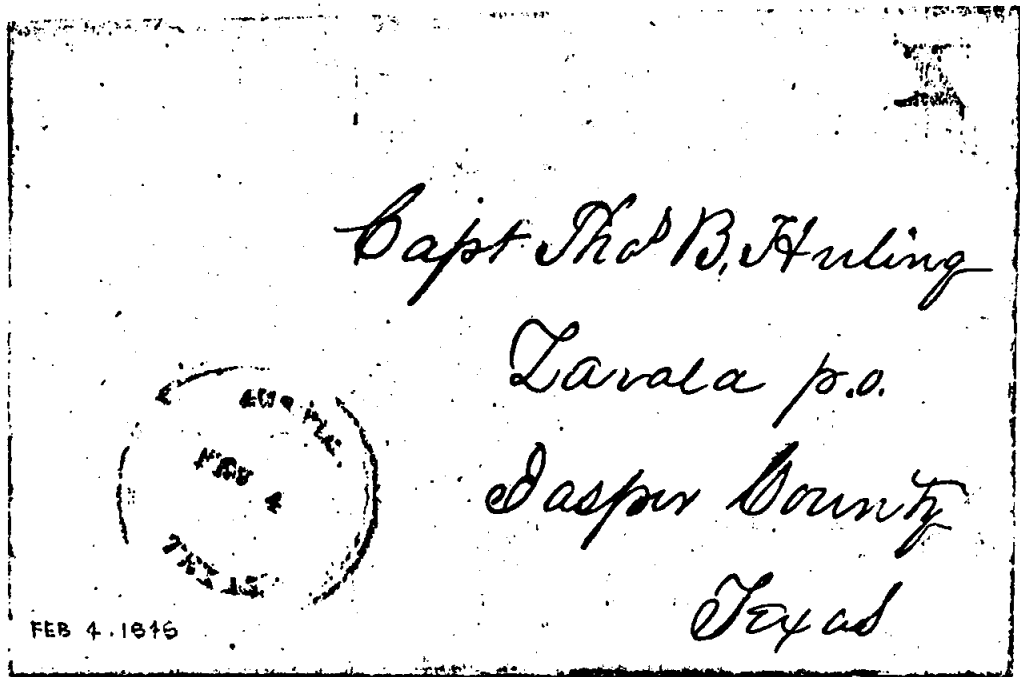 Capt Thos B. Huling
Zavala p.o.
Jasper County
Texas
FEB 4
FEB 4. 1846